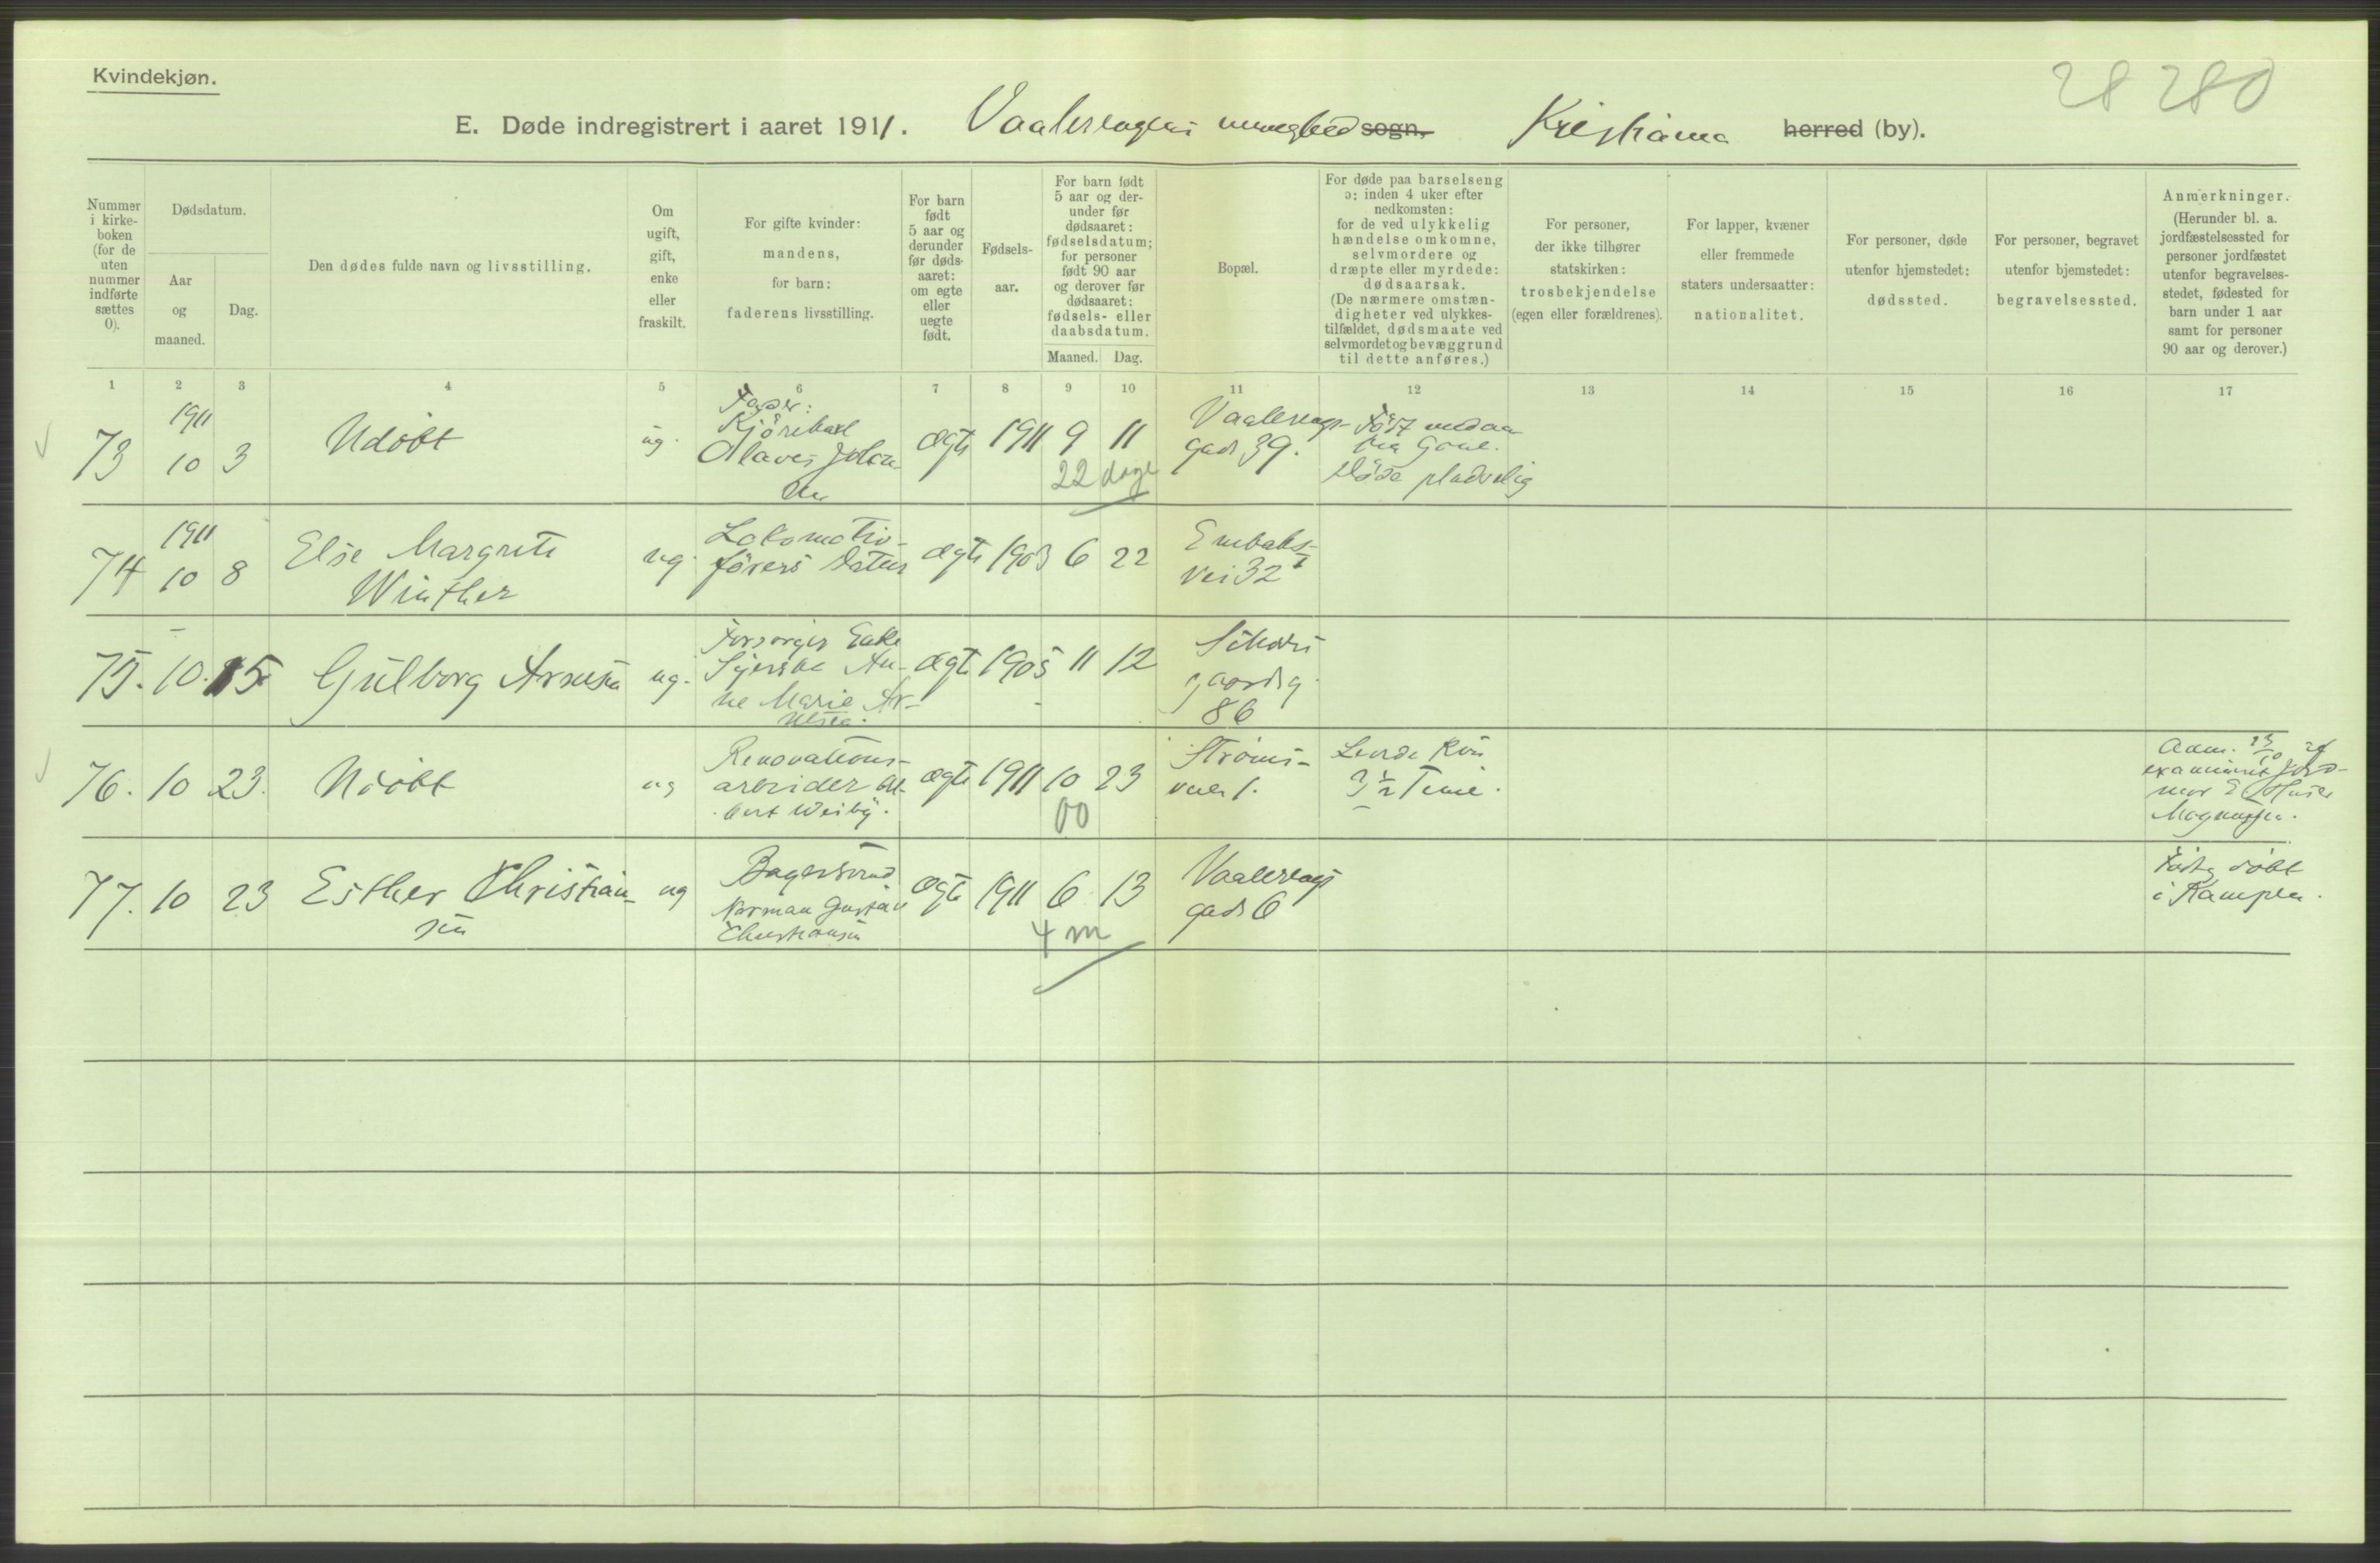 Kvindekjøn.
28 280
E. Døde indregistrert i aaret 1911. Vaalerengens menighed sogn, Kristiania herred (by).
Nummer i kirke- boken (for de uten nummer indførte sættes 0).
Dødsdatum.
Aar og maaned.
Dag.
Den dødes fulde navn og livsstilling.
Om ugift, gift, enke eller fraskilt.
For gifte kvinder: mandens, for barn: faderens livsstilling.
For barn født 5 aar og derunder før døds- aaret: om egte eller uegte født.
Fødsels- aar.
For barn født 5 aar og der- under før dødsaaret: fødselsdatum; for personer født 90 aar og derover før dødsaaret: fødsels- eller daabsdatum.
Maaned. Dag.
Bopæl.
For døde paa barselseng ɔ: inden 4 uker efter nedkomsten: for de ved ulykkelig hændelse omkomne, selvmordere og dræpte eller myrdede: dødsaarsak. (De nærmere omstæn- digheter ved ulykkes- tilfældet, dødsmaate ved selvmordet og bevæggrund til dette anføres.)
For personer, der ikke tilhører statskirken: trosbekjendelse (egen eller forældrenes).
For lapper, kvæner eller fremmede staters undersaatter: nationalitet.
For personer, døde utenfor hjemstedet: dødssted.
For personer, begravet utenfor hjemstedet: begravelsessted.
Anmerkninger. (Herunder bl. a. jordfæstelsessted for personer jordfæstet utenfor begravelses- stedet, fødested for barn under 1 aar samt for personer 90 aar og derover.)
1 2 3 4 5 6 7 8 9 10 11 12 13 14 15 16 17
73 1911 10 3 Udöbt ug. Fader: Kjörekarl Olaves Johan sen ægte 1911 9 11 22 dage Vaalerengs- gad 39. Född
Döde pludselig
74 1911 10 8 Else Margrete Winther ug. Lokomotiv- förers Datter ægte 1903 6 22 Enebaks- vei 32
75. 10. 15. Gülborg Arnesen ug. Forsörger Enke Syerske An- ne Marie Ar- nesen. ægte 1905 11 12 Schous gaardsg. 86
76. 10 23. Udöbt ug Renovations- arbeider Al- bert Weiby. ægte 1911 10 23 00 Ströms- veien 1. Levede kun 3½ Time. Anm. 23/10 af examineret Jord- mor Magnussen.
77. 10 23 Esther Christian- sen ug Bagersvend Norman Gustav Christiansen ægte 1911 6 13 4 m Vaalerengs gad 6 Födt og döbt i Kampen.